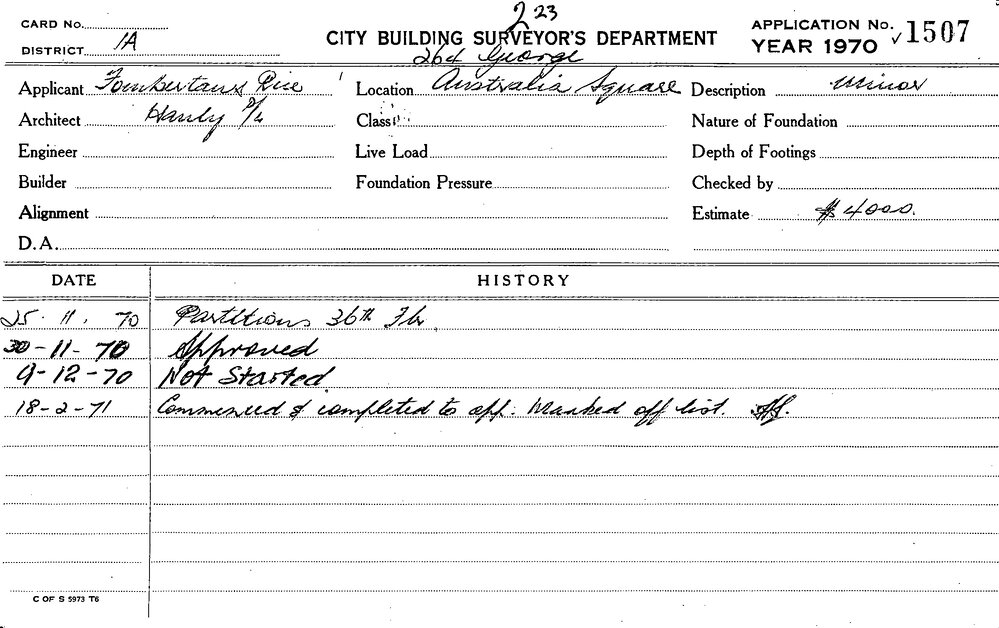 223
CARD No.
DISTRICT 1A
CITY BUILDING SURVEYOR'S DEPARTMENT
APPLICATION No. ✓1507
YEAR 1970
264 George
Applicant Rice
Location Australia Square
Description Minor
Architect Hanly P/L
Class
Nature of Foundation
Engineer
Live Load
Depth of Footings
Builder
Foundation Pressure
Checked by
Alignment
Estimate $4000.
D.A.
DATE HISTORY
25.11.70 Partitions 36th Flr.
30-11-70 Approved
9-12-70 Not Started
18-2-71 Commenced & completed to app. Marked off list.
C OF S 5973 T6